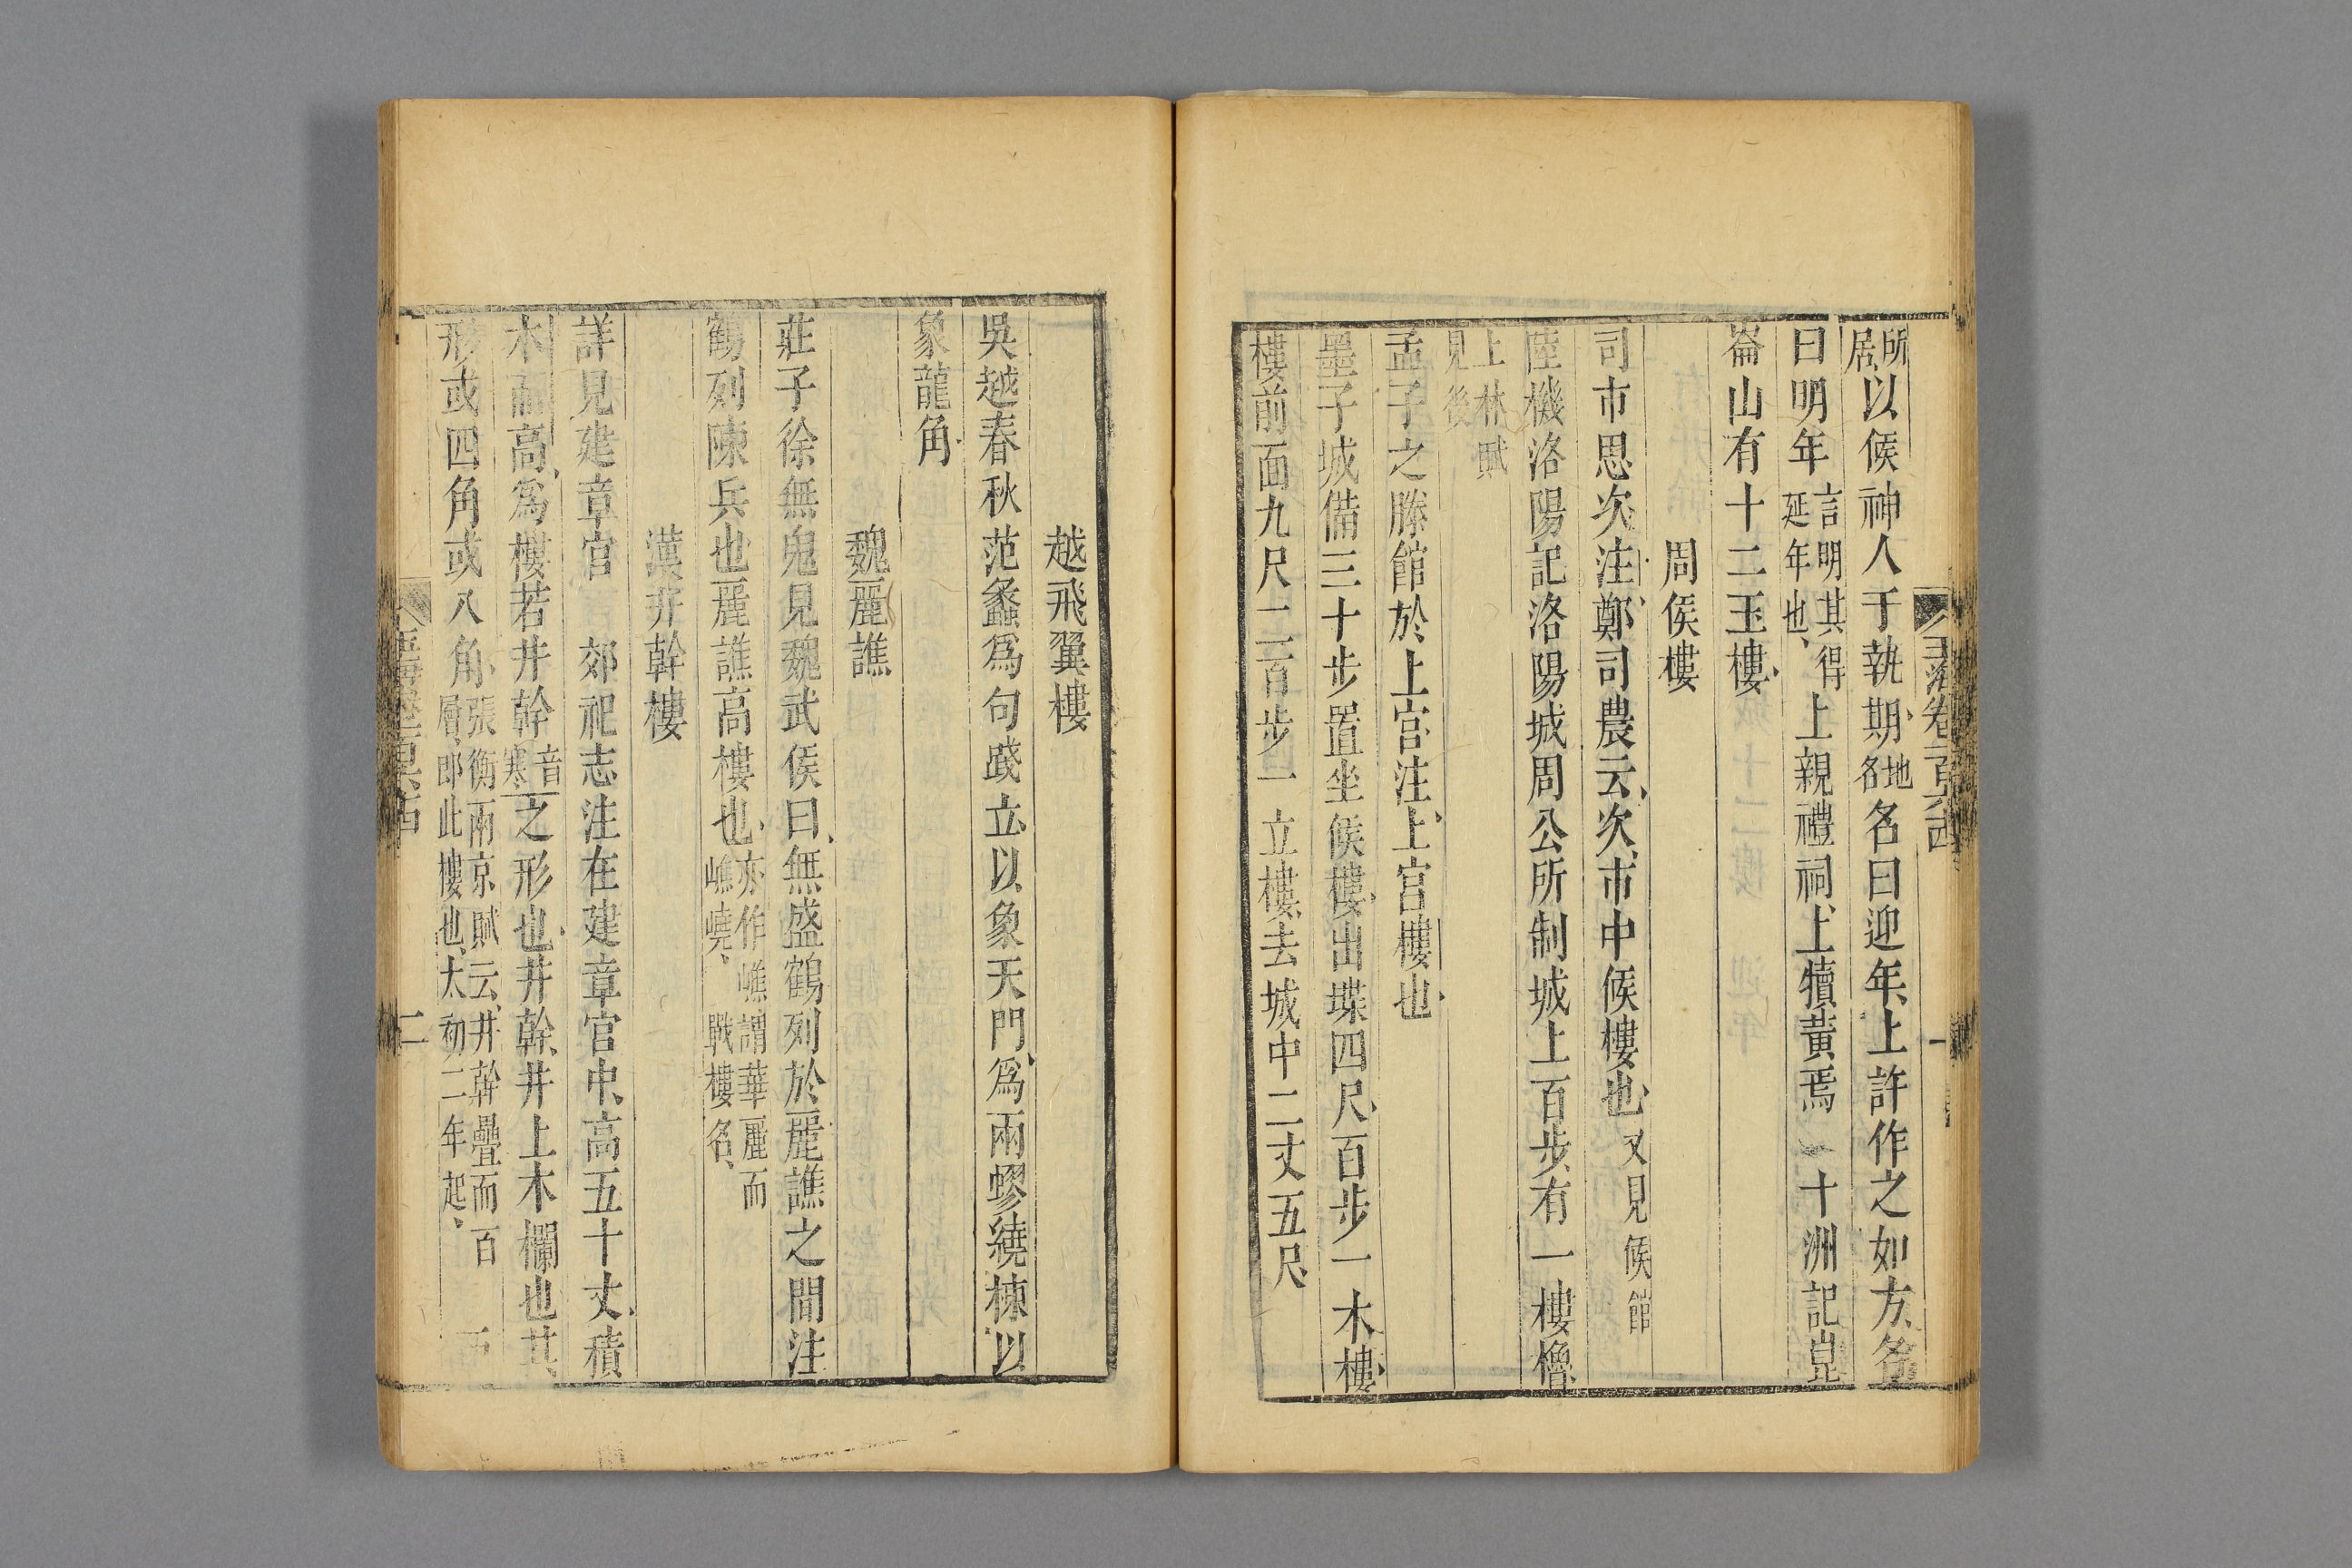 玉海卷一百六十四 一
所居以候神人于執期地名名曰迎年上許作之如方名
曰明年言明其得延年也上親禮祠上犢黃焉 十洲記崑
崙山有十二玉樓
周候樓
司市思次注鄭司農云次市中候樓也又見候館
陸機洛陽記洛陽城周公所制城上百步有一樓櫓
上林賦見後
孟子之滕館於上宮注上宮樓也
墨子城備三十步置坐候樓出堞四尺百步一木樓
樓前面九尺二百步一立樓去城中二丈五尺
越飛翼樓
吳越春秋范蠡爲句踐立以象天門爲兩蟉繞棟以
象龍角
魏麗譙
莊子徐無鬼見魏武侯曰無盛鶴列於麗譙之間注
鶴列陳兵也麗譙高樓也亦作嶕謂華麗而嶕嶢戰樓名
漢井幹樓
詳見建章宮 郊祀志注在建章宮中高五十丈積
木而高爲樓若井幹音寒之形也井幹井上木欄也其
形或四角或八角張衡西京賦云井幹疊而百層郎此樓也太初二年起
二